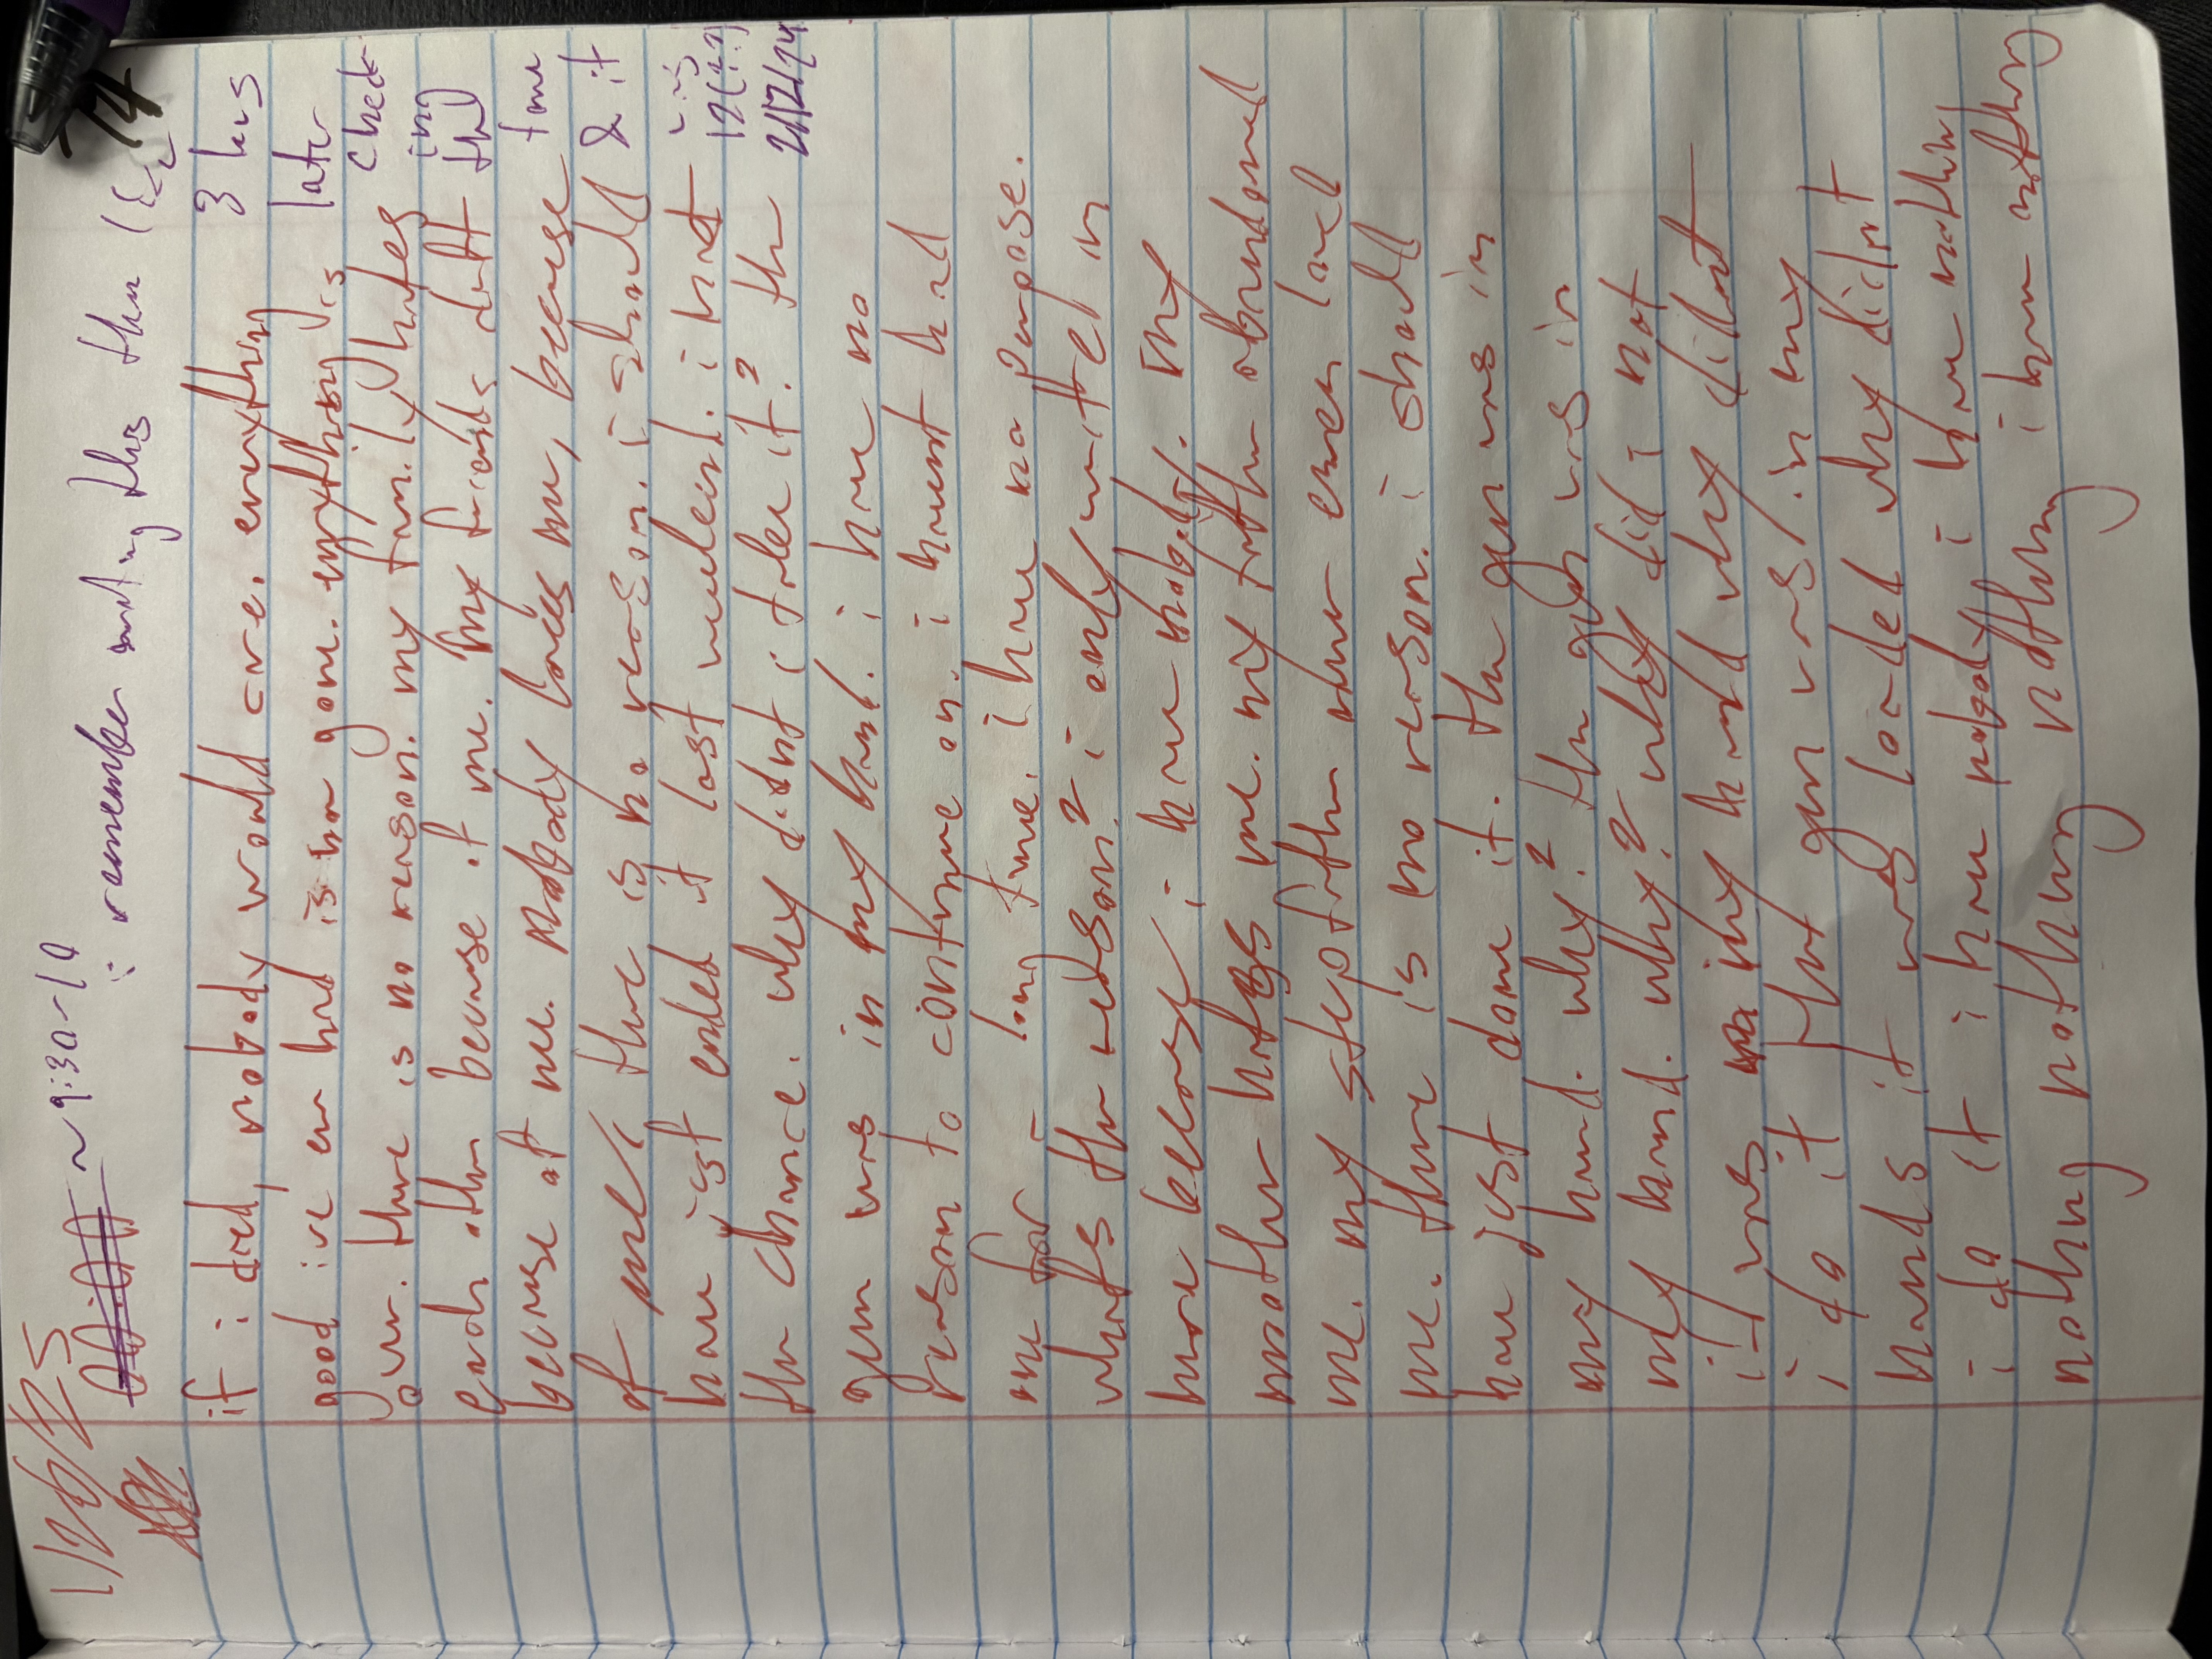 1/26/25
00:00 ~9:30-10
i remember writing this then like
74
3 hrs
later
check
ing
the
time
& it
was
12(??)
2/12/24
if i died, nobody would care. everything
good ive ever had is now gone. everything is
over. there is no reason. my family hates
each other because of me. my friends left
because of me. nobody loves me, because
of me. there is no reason. i should
have just ended it last weekend. i had
the chance. why didnt i take it? the
gun was in my hand. i have no
reason to continue on. i havent had
one for a long time. i have no purpose.
whats the reason? i only write in
here because i have nobody. my
mother hates me. my father abandoned
me. my stepfather never even loved
me. there is no reason. i should
have just done it. the gun was in
my hand. why? the gun was in
my hand. why? why did i not
it was in my hand why didnt
i do it that gun was in my
hands it was loaded why didnt
i do it i have nobody i have nothing
nothing nothing nothing i have nothing